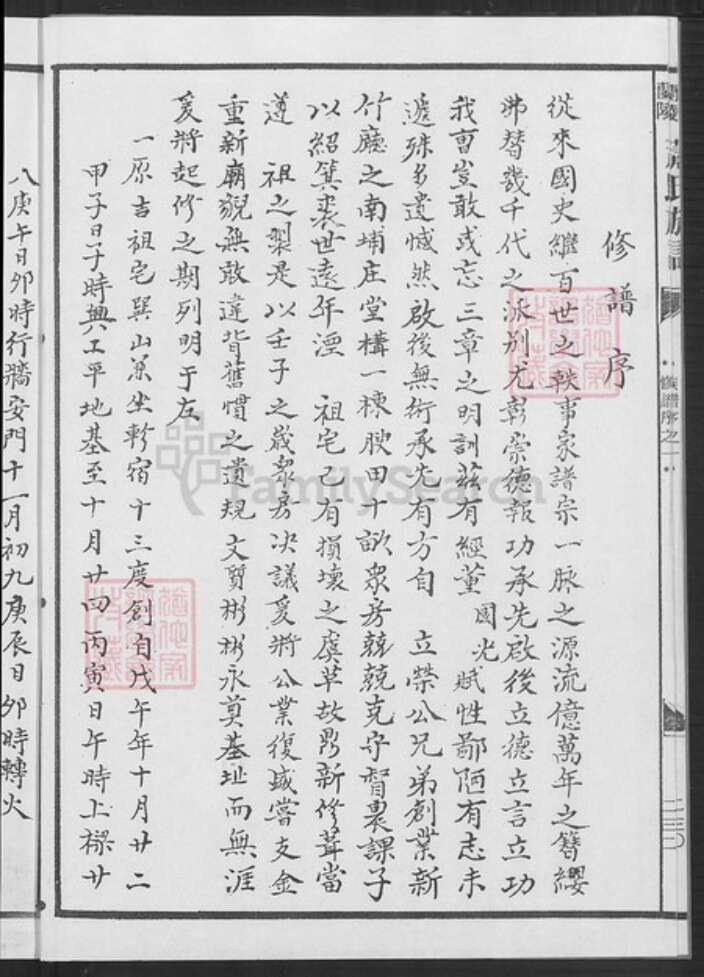 修譜序
從來國史繼百世之軼事家譜宗一脉之源流億萬年之簪纓
弗替幾千代之派別尤彰崇德報功承先啟後立德立言立功
我曹豈敢或忘三章之明訓茲有經董 國光 賦性鄙陋有志未
遞殊多遺憾然啟後無術承先有方自 立榮公兄弟創業新
竹廳之南埔庄堂構一棟腴田十畝眾房兢兢克守督農課子
以紹箕裘世遠年湮 祖宅已有損壞之虞草故鼎新修葺當
遵 祖之製是以壬子之歲眾房决議爰將公業復盛嘗支金
重新廟貌無敢違背舊慣之遺規文質彬彬永奠基址而無涯
爰將起修之期列明于左
一原吉祖宅巽山 坐軫宿十三度創自戊午年十月廿二
甲子日子時興工平地基至十月廿四丙寅日午時上樑廿
八庚午日卯時行牆安門十一月初九庚辰日卯時轉火
蘭陵 蕭氏族譜
族譜序之
FamilySearch